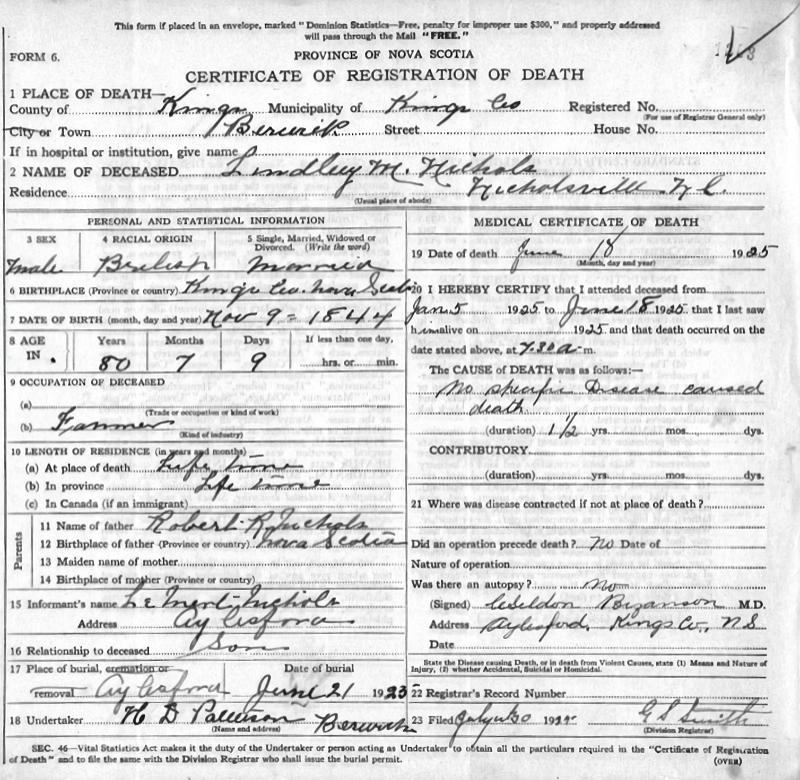 This form if placed in an envelope, marked "Dominion Statistics—Free, penalty for improper use $300," and properly addressed
will pass through the Mail "FREE."
FORM 6.
PROVINCE OF NOVA SCOTIA
CERTIFICATE OF REGISTRATION OF DEATH
1 PLACE OF DEATH—
County of Kings Municipality of Kings Co Registered No.
(For use of Registrar General only)
City or Town Berwick Street House No.
If in hospital or institution, give name
2 NAME OF DECEASED Lindley M. Nichols
Residence Nicholsville
(Usual place of abode)
PERSONAL AND STATISTICAL INFORMATION
3 SEX 4 RACIAL ORIGIN 5 Single, Married, Widowed or Divorced. (Write the word)
Male British Married
6 BIRTHPLACE (Province or country) Kings Co. Nova Scotia
7 DATE OF BIRTH (month, day and year) Nov 9 - 1844
8 AGE IN. Years Months Days If less than one day,
80 7 9 hrs. or min.
9 OCCUPATION OF DECEASED
(a)
(Trade or occupation or kind of work)
(b) Farmer
(Kind of industry)
10 LENGTH OF RESIDENCE (in years and months)
(a) At place of death Life time
(b) In province Life time
(c) In Canada (if an immigrant)
Parents
11 Name of father Robert R. Nichols
12 Birthplace of father (Province or country) Nova Scotia
13 Maiden name of mother
14 Birthplace of mother (Province or country)
15 Informant's name Nichols
Address Aylesford
16 Relationship to deceased Son
17 Place of burial, cremation or removal Aylesford Date of burial June 21 1925
18 Undertaker H D Patterson Berwick
(Name and address)
MEDICAL CERTIFICATE OF DEATH
19 Date of death June 18 1925
(Month, day and year)
20 I HEREBY CERTIFY that I attended deceased from
Jan 5 1925 to June 18 1925 that I last saw
him alive on 1925 and that death occurred on
date stated above, at 7.30 a-m.
The CAUSE of DEATH was as follows:—
No specific Disease caused
death
(duration) 1 1/2 yrs. mos. dys.
CONTRIBUTORY
(duration) yrs. mos. dys.
21 Where was disease contracted if not at place of death?
Did an operation precede death? No Date of
Nature of operation
Was there an autopsy? No
(Signed) Bezanson M.D.
Address Aylesford, Kings Co, N S
Date
State the Disease causing Death, or in death from Violent Causes, state (1) Means and Nature of
Injury, (2) whether Accidental, Suicidal or Homicidal.
22 Registrar's Record Number
23 Filed July 30 192 G S Smith
(Division Registrar)
SEC. 46—Vital Statistics Act makes it the duty of the Undertaker or person acting as Undertaker to obtain all the particulars required in the "Certificate of Registration
of Death" and to file the same with the Division Registrar who shall issue the burial permit. (OVER)